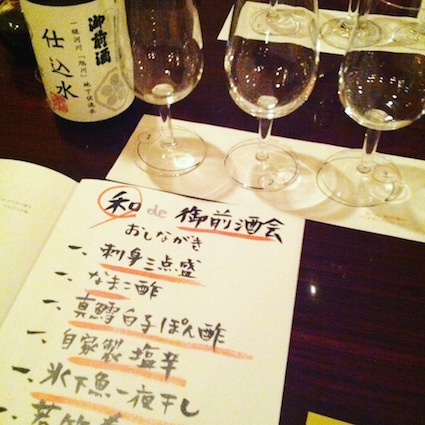 御前酒
一級河川「旭川」地下伏流水
仕込水
和 de 御前酒会
おしながき
一、刺身三点盛
一、なまこ酢
一、真鱈白子ぽん酢
一、自家製塩辛
一、氷下魚一夜干し